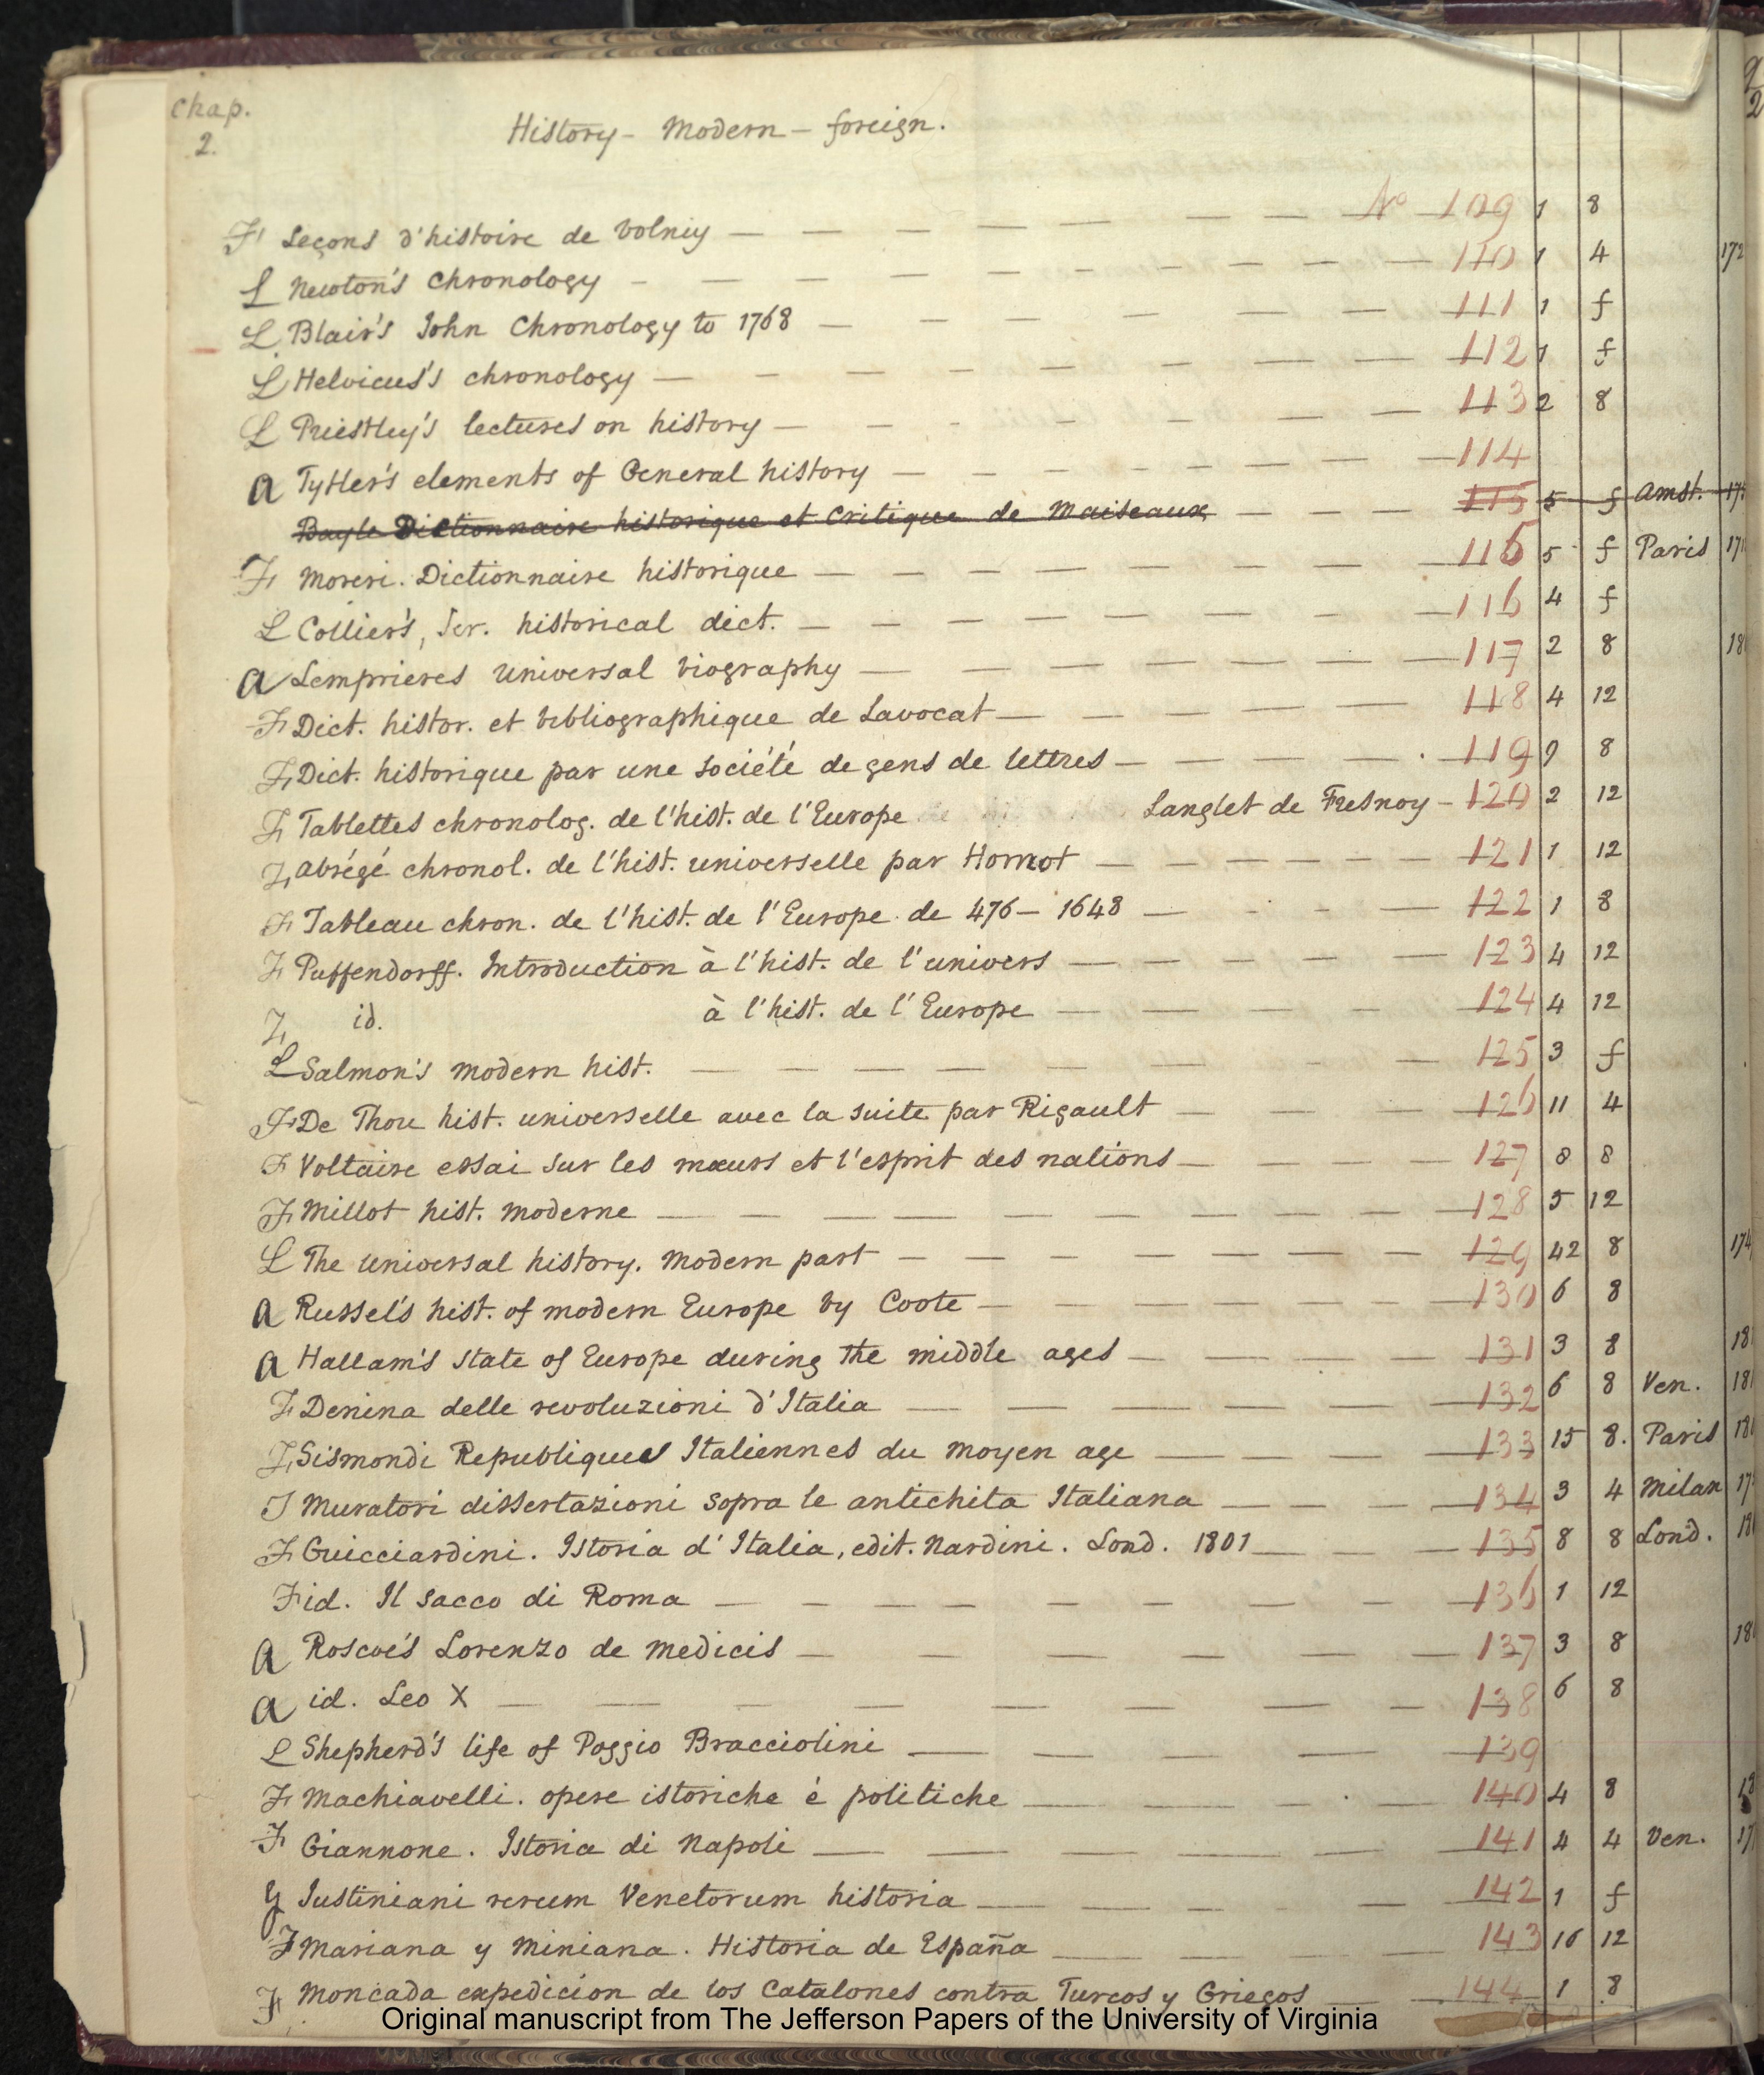 Chap.
2.
History - Modern - foreign.
F Leçons d'histoire de Volney — No 109 1 8
L Newton's Chronology — 110 1 4 172
L Blair's John Chronology to 1768 — 111 1 f
L Helvicus's chronology — 112 1 f
L Priestley's lectures on history — 113 2 8
a Tytler's elements of General history — 114
Bayle Dictionnaire historique et Critique de Maiseaux — 115 5 f Amst. 17
F Moreri. Dictionnaire historique — 116 5 f Paris 17
L Collier's, Jer. historical dict. — 116 4 f
a Lemprieres Universal biography — 117 2 8 18
F Dict. histor. et bibliographique de Lavocat — 118 4 12
F Dict. historique par une Société de gens de lettres — 119 9 8
F Tablettes chronolog. de l'hist. de l'Europe Langlet de Fresnoy - 120 2 12
F abrégé chronol. de l'hist. universelle par Hornot — 121 1 12
F Tableau chron. de l'hist. de l'Europe de 476 - 1648 — 122 1 8
F Puffendorff. Introduction à l'hist. de l'univers — 123 4 12
F id. à l'hist. de l'Europe — 124 4 12
L Salmon's modern hist. — 125 3 f
F De Thou hist. universelle avec la suite par Rigault — 126 11 4
F Voltaire essai sur les mœurs et l'esprit des nations — 127 8 8
F Millot hist. moderne — 128 5 12
L The Universal history. Modern part — 129 42 8 174
a Russel's hist. of modern Europe by Coote — 130 6 8
a Hallam's state of Europe during the middle ages — 131 3 8 18
F Denina delle revoluzioni d'Italia — 132 6 8 Ven. 18
F Sismondi Republiques Italiennes du moyen age — 133 15 8. Paris 18
F Muratori dissertazioni sopra le antichita Italiana — 134 3 4 Milan 17
F Guicciardini. Istoria d'Italia, edit. Nardini. Lond. 1801 — 135 8 8 Lond. 18
F id. Il sacco di Roma — 136 1 12
a Roscoe's Lorenzo de Medicis — 137 3 8 18
a id. Leo X — 138 6 8
L Shepherd's life of Poggio Bracciolini — 139
F Machiavelli. opere istoriche é politiche — 140 4 8 18
F Giannone. Istoria di Napoli — 141 4 4 Ven. 17
Justiniani rerum Venetorum historia — 142 1 f
F Mariana y Miniana. Historia de España — 143 16 12
F Moncada expedicion de los Catalones contra Turcos y Griegos — 144 1 8
Original manuscript from The Jefferson Papers of the University of Virginia